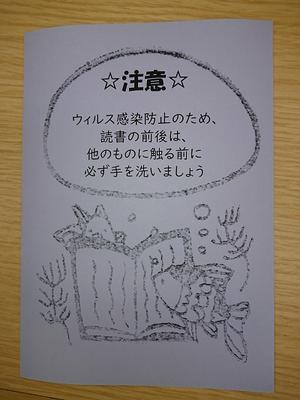 ☆注意☆
ウィルス感染防止のため、
読書の前後は、
他のものに触る前に
必ず手を洗いましょう